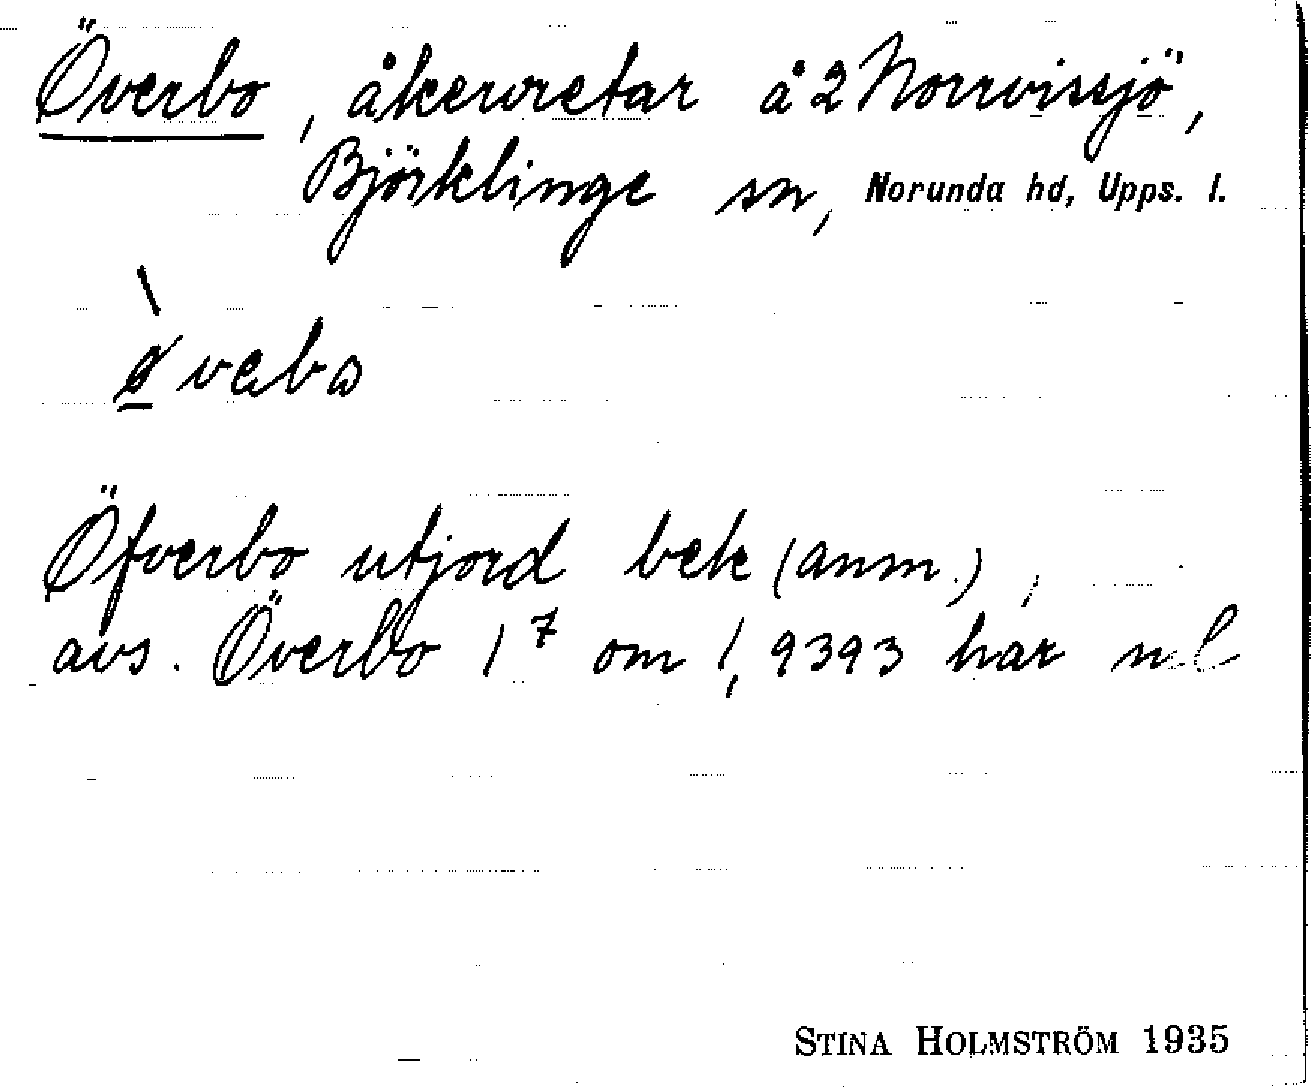 Överbo, åkervretar å 2 Norrvissjö,
Björklinge sn, Norunda hd, Upps. l.
Öfverbo utjord bek (anm.),
avs. Överbo 1⁷ om 1,9393 har
STINA HOLMSTRÖM 1935